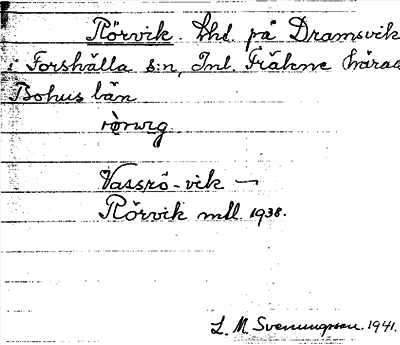 Rörvik. Lhd. på Dramsvik
i Forshälla s:n, Inl. Fräkne härad
Bohus län
rö̀rvig.
Vassrö-vik —
Rörvik mtl. 1938.
L. M. Svenungsson. 1941.